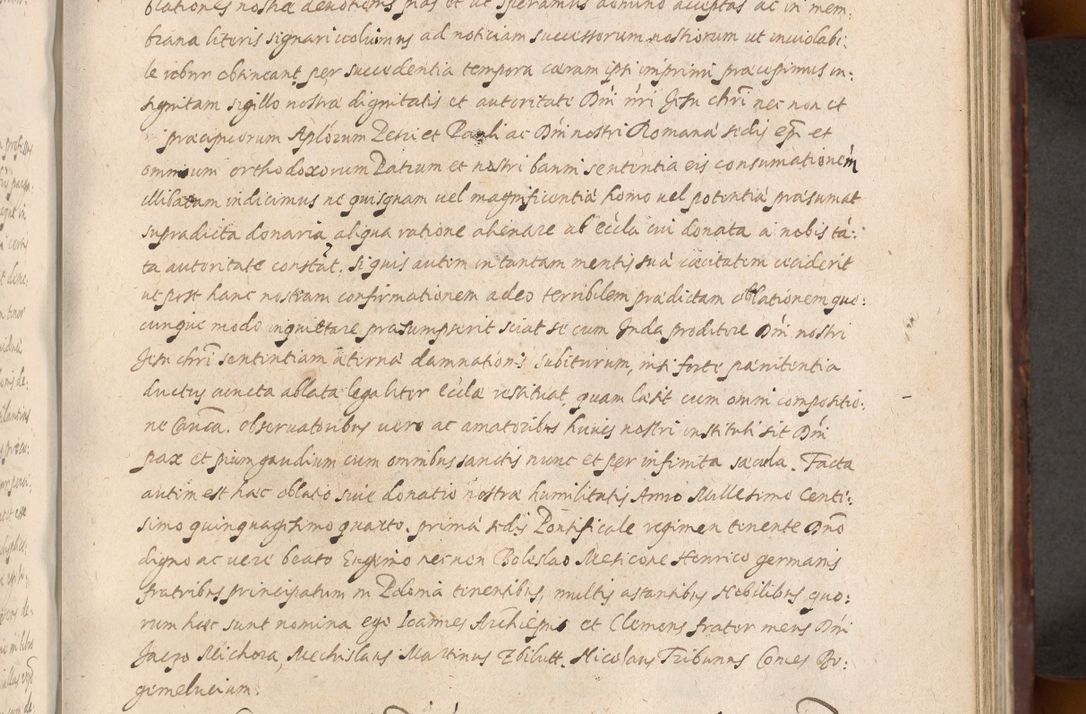 blationes nostræ devotionis pias et ut speramus domino acceptas ac in mem:
brana literis signari volumus ad noticiam successorum nostrorum ut inviolabi:
le robur obtineant per succedentia tempora ceram ipsi imprimi præcepimus in:
signitam sigillo nostræ dignitatis et autoritate Dni nri Jesu chri nec non et
præcipuorum Aplorum Petri et Pauli ac Dni nostri Romanæ sedis epi et
omnium orthodoxorum Patrum et nostri banni sententia eis consumationem
illibatam indicimus ne quisquam vel magnificentia homo vel potentia præsumat
supradicta donaria aliqua ratione alienare ab eccla cui donata a nobis ta:
ta autoritate constat. Si quis autem in tantam mentis suæ cæcitatem ceciderit
ut post hanc nostram confirmationem adeo terribilem prædictam oblationem quo:
cunque modo inquietare præsumpserit sciat se cum Juda proditore Dni nostri
Jesu chri sententiam æternæ damnationis subiturum, nisi forte pænitentia
ductus cuncta ablata legaliter ecclæ restituat, quam læsit cum omni compositio:
ne Canca. observatoribus vero ac amatoribus huius nostri instituti sit Dni
pax et pium gaudium cum omnibus sanctis nunc et per infinita sæcula. Facta
autem est hæc oblatio sive donatio nostræ humilitatis Anno Millesimo Centi:
simo quinquagesimo quarto. primæ sedis Pontificale regimen tenente Dno
digno ac vere beato Eugenio nec non Boleslao Mesicone Henrico germanis
fratribus principatum in Polonia tenentibus, multis astantibus Nobilibus quo:
rum hæc sunt nomina ego Ioannes Archiepus et Clemens frater meus Dni
Jacso Michora, Mechislaus Martinus Zbilutt. Nicolaus Tribunus Comes Bo:
gemelucium: